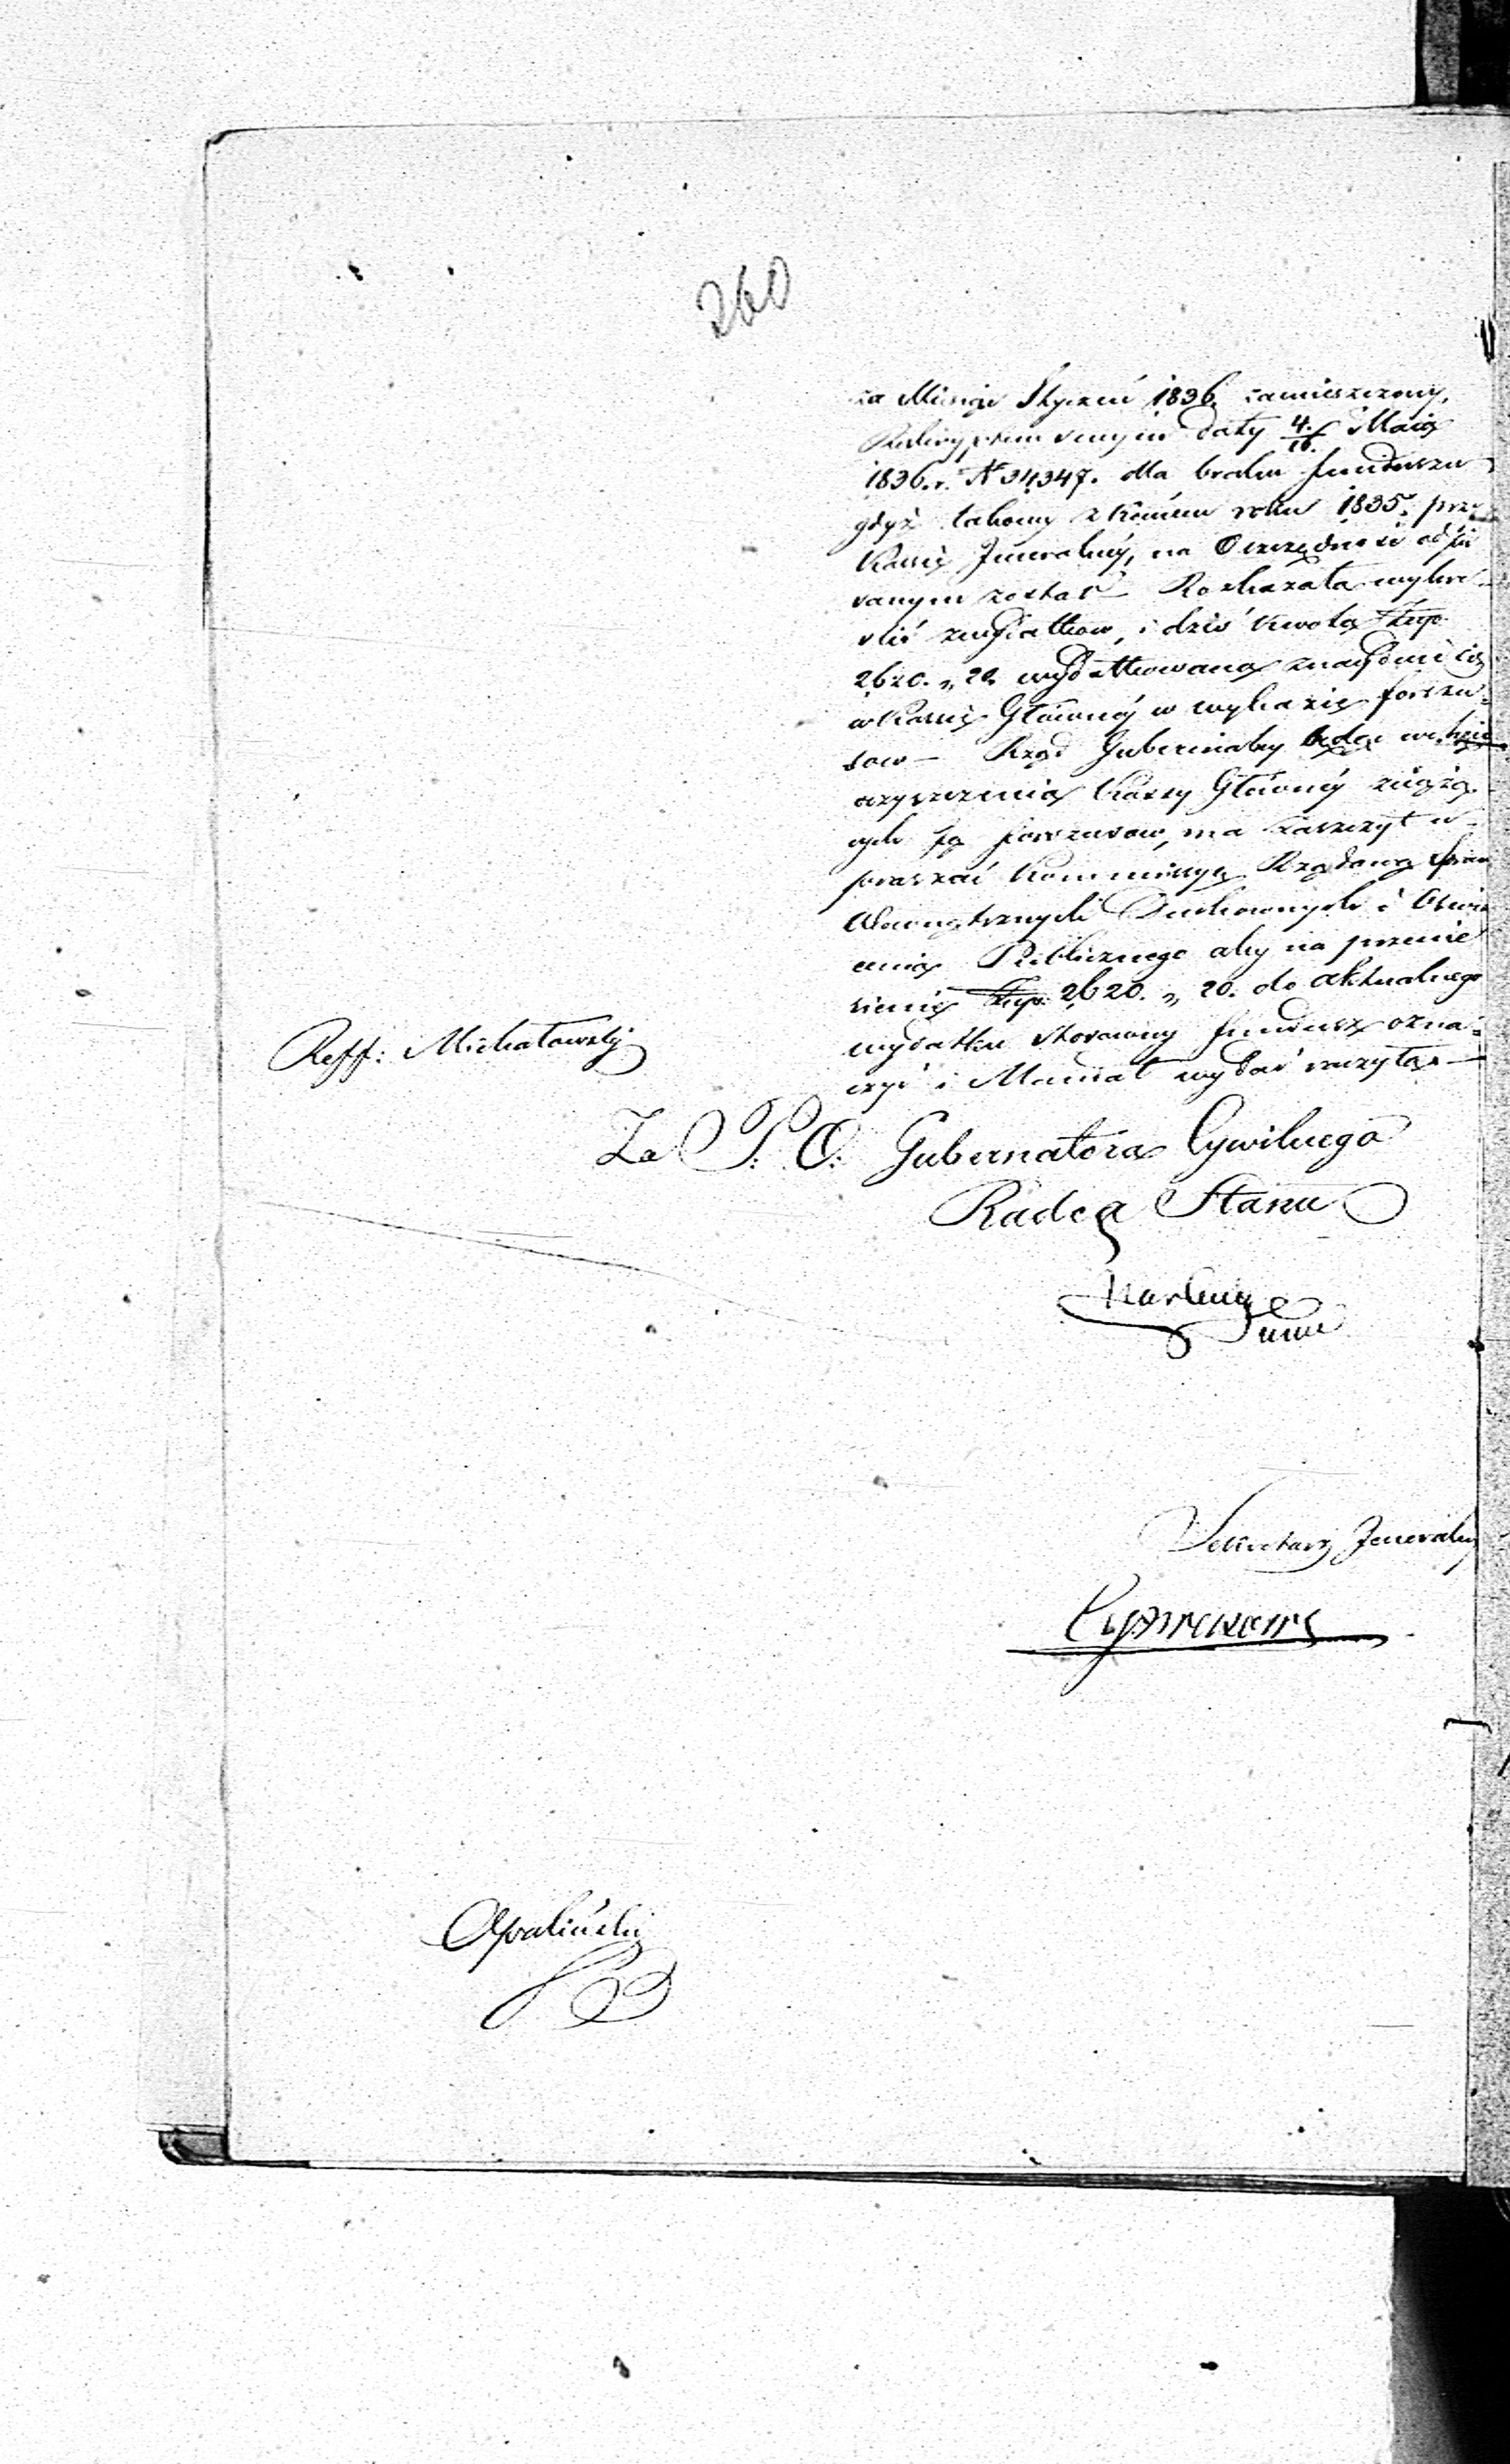 260
za Miesiąc Styczeń 1836. zamieszczony,
Reskryptem swym daty 4/16. Maia
1836. r. N 34347. dla braku funduszu
gdyż takowy z końcem roku 1835. przy
Kassie Jeneralnéy, na Oszczędności odpi
sanym został – Rozkazała wykre
slić z wydatków, i dziś kwota Złtp.
2620. „ 20. wydatkowana znayduie się
w Kassie Głównéy w wykazie forszu=
sow – Rząd Gubernialny w
oczyszczenia Kassy Głównéy z ciążą
cych ią forszusow, ma zaszczyt u
praszać Kommissyą Rządową Spraw
Wewnętrznych Duchownych i Oświe
cenia Publicznego aby na przenie
sienie Złtp. 2620. „ 20. do aktualnego
wydatku stosowny fundusz ozna=
czyć i Mandat wydać raczyła –
Reff: Michałowski
Za P. O. Gubernatora Cywilnego
Radca Stanu
Sekretarz Jeneralny
Opaliński